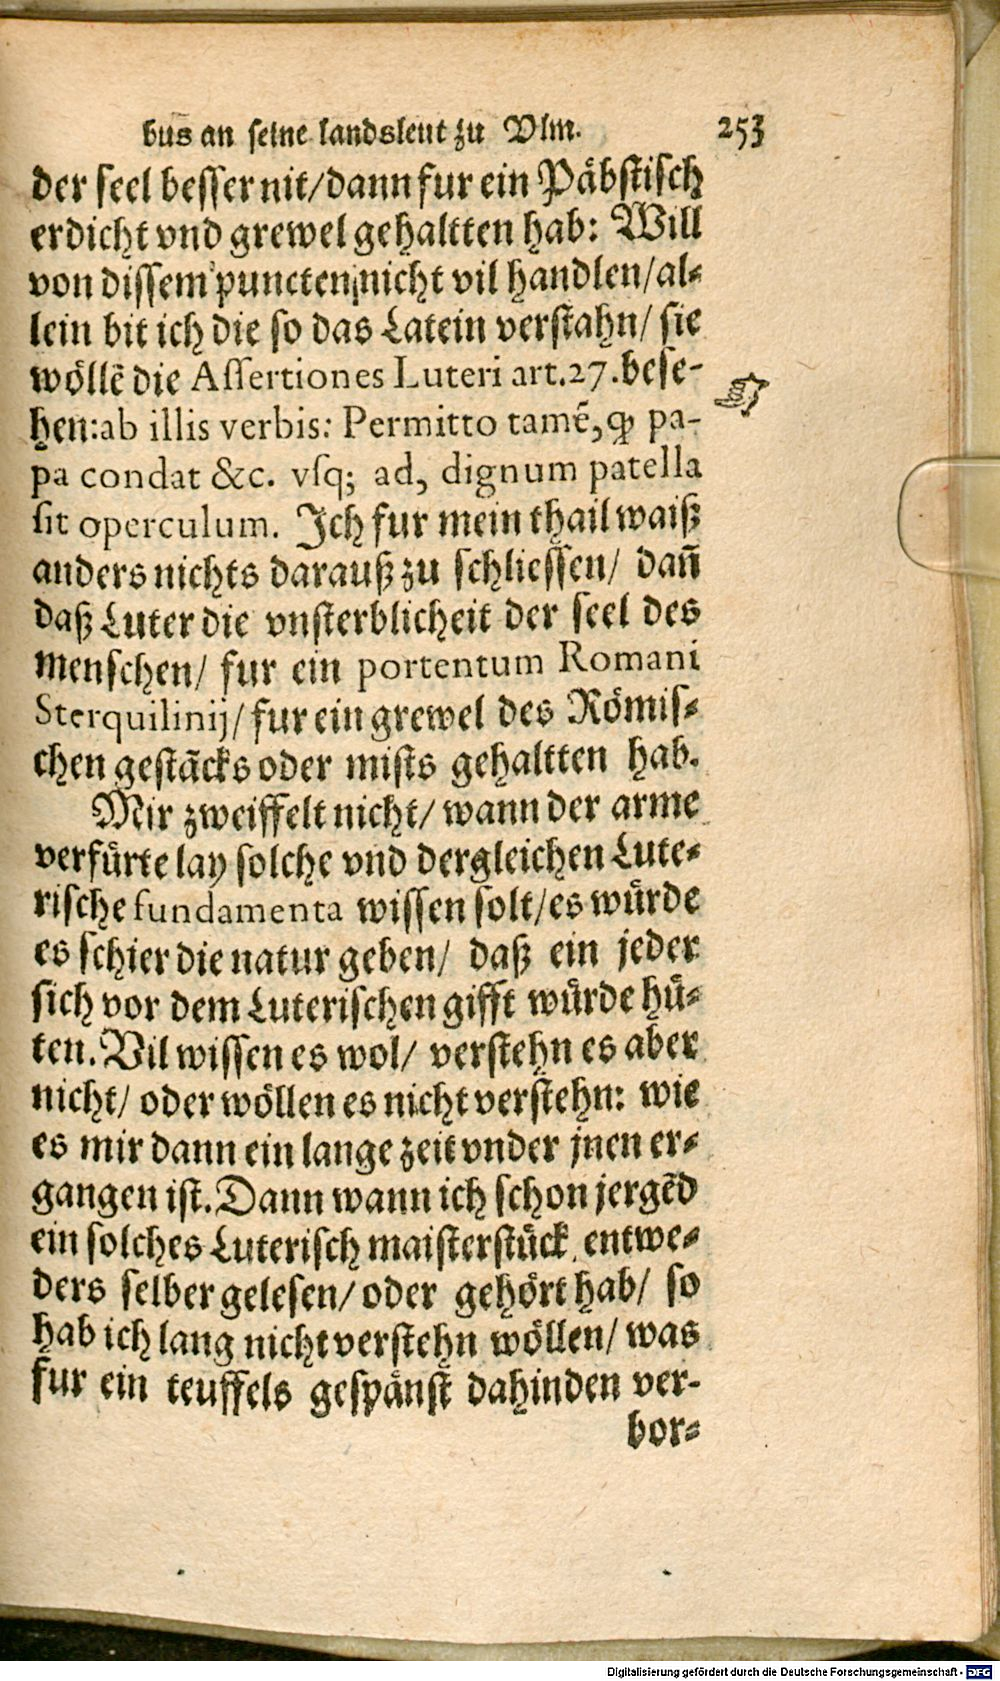 bus an seine landsleut zu Vlm. 253
der seel besser nit/dann fur ein Päbstisch
erdicht vnd grewel gehaltten hab: Will
von dissem puncten nicht vil handlen/al-
lein bit ich die so das Latein verstahn/ sie
wöllẽ die Assertiones Luteri art.27.bese-
hen:ab illis verbis: Permitto tamẽ, ꝙ pa-
pa condat &c. vsq; ad, dignum patella
sit operculum. Ich fur mein thail waiß
anders nichts darauß zu schliessen/ dañ
daß Luter die vnsterblicheit der seel des
menschen/ fur ein portentum Romani
Sterquilinij/ fur ein grewel des Römis-
chen gestãcks oder mists gehaltten hab.
Mir zweiffelt nicht/ wann der arme
verfürte lay solche vnd dergleichen Lute-
rische fundamenta wissen solt/es würde
es schier die natur geben/ daß ein jeder
sich vor dem Luterischen gifft würde hü-
ten. Vil wissen es wol/ verstehn es aber
nicht/ oder wöllen es nicht verstehn: wie
es mir dann ein lange zeit vnder jnen er-
gangen ist. Dann wann ich schon jergẽd
ein solches Luterisch maisterstück entwe-
ders selber gelesen/ oder gehört hab/ so
hab ich lang nicht verstehn wöllen/ was
fur ein teuffels gespänst dahinden ver-
bor-
Digitalisierung gefördert durch die Deutsche Forschungsgemeinschaft - DFG